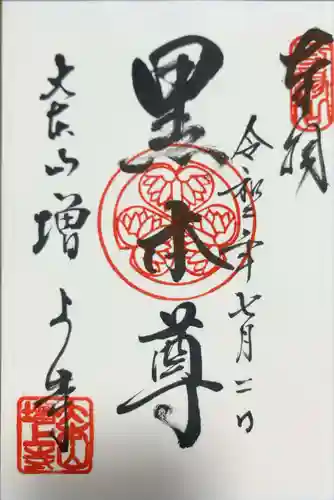 奉拝
令和二年七月二日
黒本尊
大本山増上寺